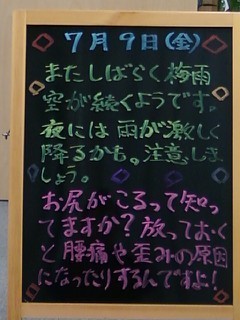 7月9日(金)
またしばらく梅雨
空が続くようです。
夜には雨が激しく
降るかも。注意しま
しょう。
お尻がころって知っ
てますか?放っておく
と腰痛や歪みの原因
になったりするんですよ!